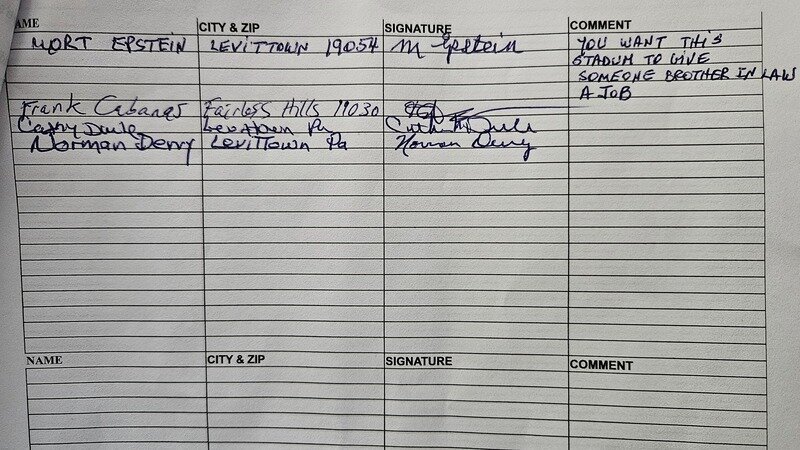 AME CITY & ZIP SIGNATURE COMMENT
MORT EPSTEIN LEVITTOWN 19054 M Epstein YOU WANT THIS
STADUM TO GIVE
SOMEONE BROTHER IN LAW
A JOB
Frank Cabanas Fairless Hills 19030
Cathy Levittown Pa
Norman Derry LeviTTown Pa Norman Derry
NAME CITY & ZIP SIGNATURE COMMENT